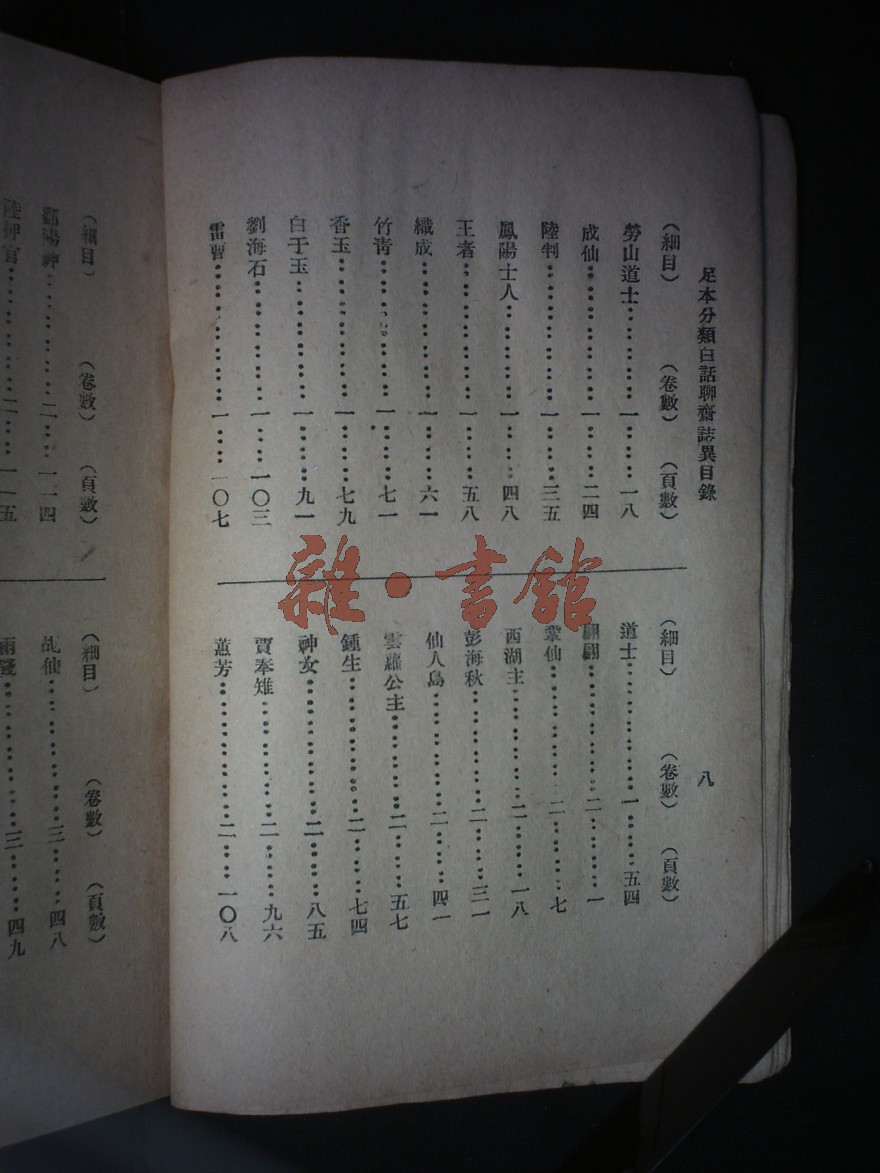 足本分類白話聊齋誌異目錄
八
（細目）　（卷數）（頁數）
勞山道士……一……一八
成仙……一……二四
陸判……一……三五
鳳陽士人……一……四八
王者……一……五八
織成……一……六一
竹青……一……七一
香玉……一……七九
白于玉……一……九一
劉海石……一……一〇三
雷曹……一……一〇七
（細目）　（卷數）（頁數）
道士……一……五四
翩翩……二……一
鞏仙……二……七
西湖主……二……一八
彭海秋……二……三一
仙人島……二……四一
雲蘿公主……二……五七
鍾生……二……七四
神女……二……八五
賈奉雉……二……九六
蕙芳……二……一〇八
雜·書館
（細目）　（卷數）（頁數）
陽神……二……一一四
陸押官……二……一一五
（細目）　（卷數）（頁數）
乩仙……三……四八
雨錢……三……四九